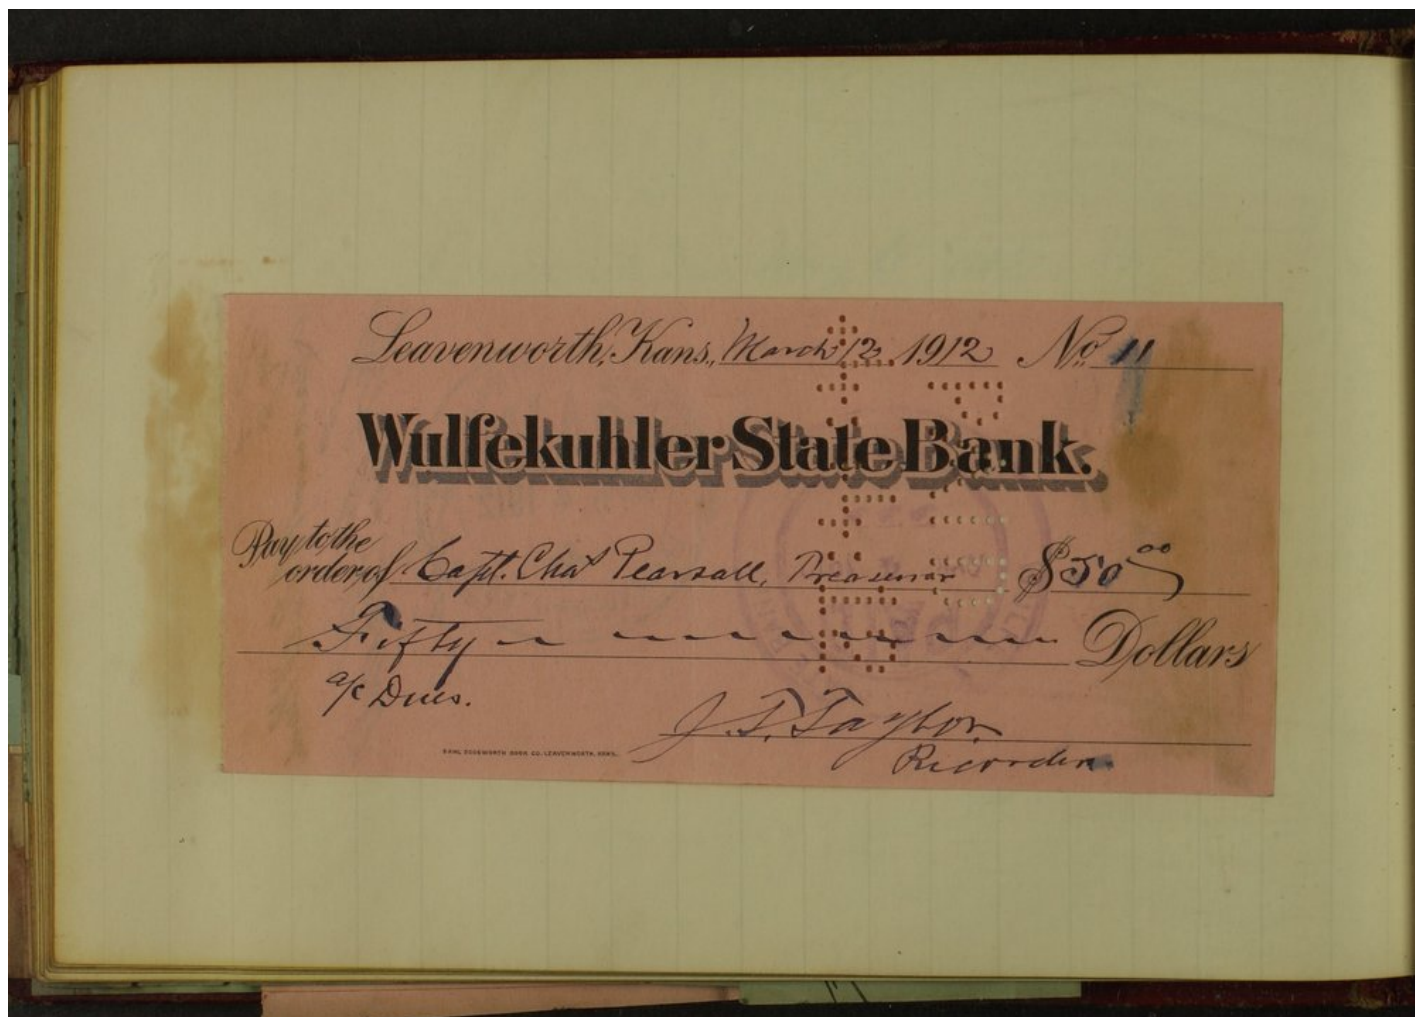 Leavenworth, Kans., March 12 1912 No. 11
Wulfekuhler State Bank.
Pay to the
order of Capt. Chas Pearsall, Treasurer $50.00
Fifty Dollars
a/c Dues.
J. T. Taylor.
Recorder
CO. LEAVENWORTH, KANS.